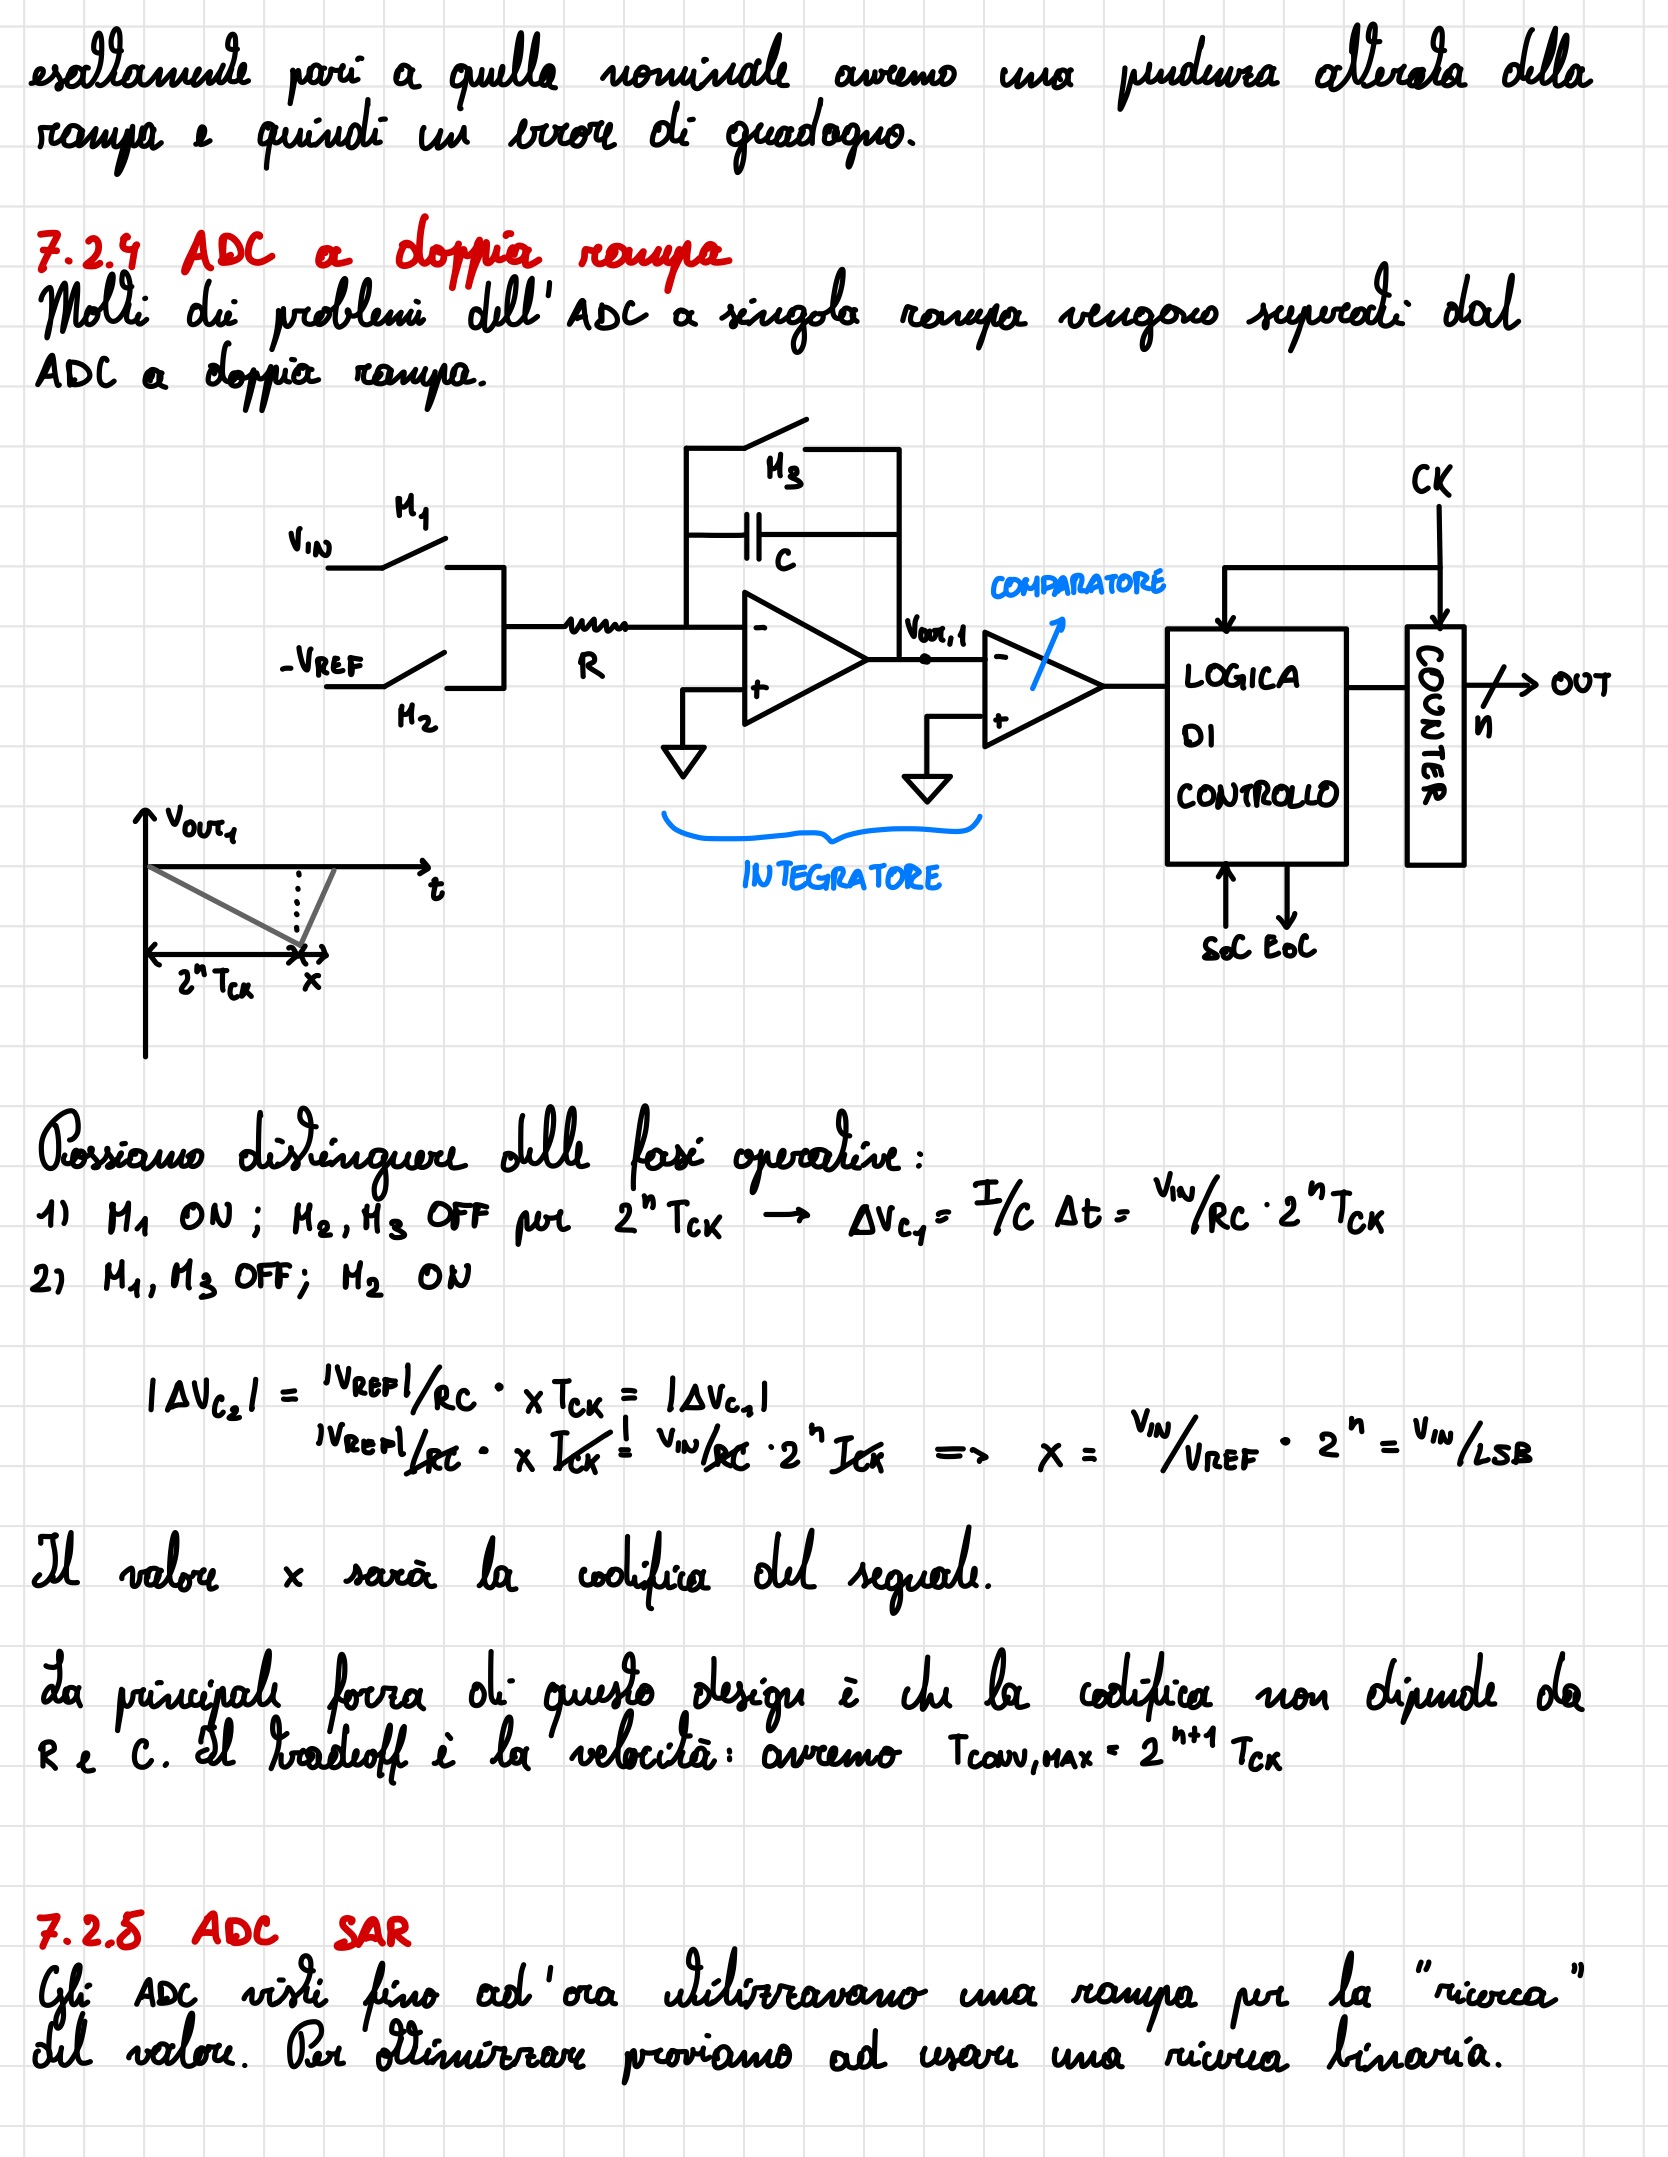 esattamente pari a quella nominale avremo una pendenza alterata della
rampa e quindi un errore di guadagno.
7.2.4 ADC a doppia rampa
Molti dei problemi dell'ADC a singola rampa vengono superati dal
ADC a doppia rampa.
M3
CK
M1
VIN
C
COMPARATORE
-
VOUT,1
-VREF
R
-
+
LOGICA
DI
CONTROLLO
COUNTER
OUT
n
M2
+
VOUT,1
t
INTEGRATORE
SOC EOC
2^n TCK x
Possiamo distinguere delle fasi operative:
1) M1 ON ; M2, M3 OFF per 2^n TCK → ΔVC1 = I/C Δt = VIN/RC · 2^n TCK
2) M1, M3 OFF; M2 ON
|ΔVC2| = |VREF|/RC · x TCK = |ΔVC1|
|VREF|/RC · x TCK != VIN/RC · 2^n TCK => x = VIN/VREF · 2^n = VIN/LSB
Il valore x sarà la codifica del segnale.
La principale forza di questo design è che la codifica non dipende da
R e C. Il tradeoff è la velocità: avremo TCONV,MAX = 2^n+1 TCK
7.2.5 ADC SAR
Gli ADC visti fino ad'ora utilizzavano una rampa per la "ricerca"
del valore. Per ottimizzare proviamo ad usare una ricerca binaria.